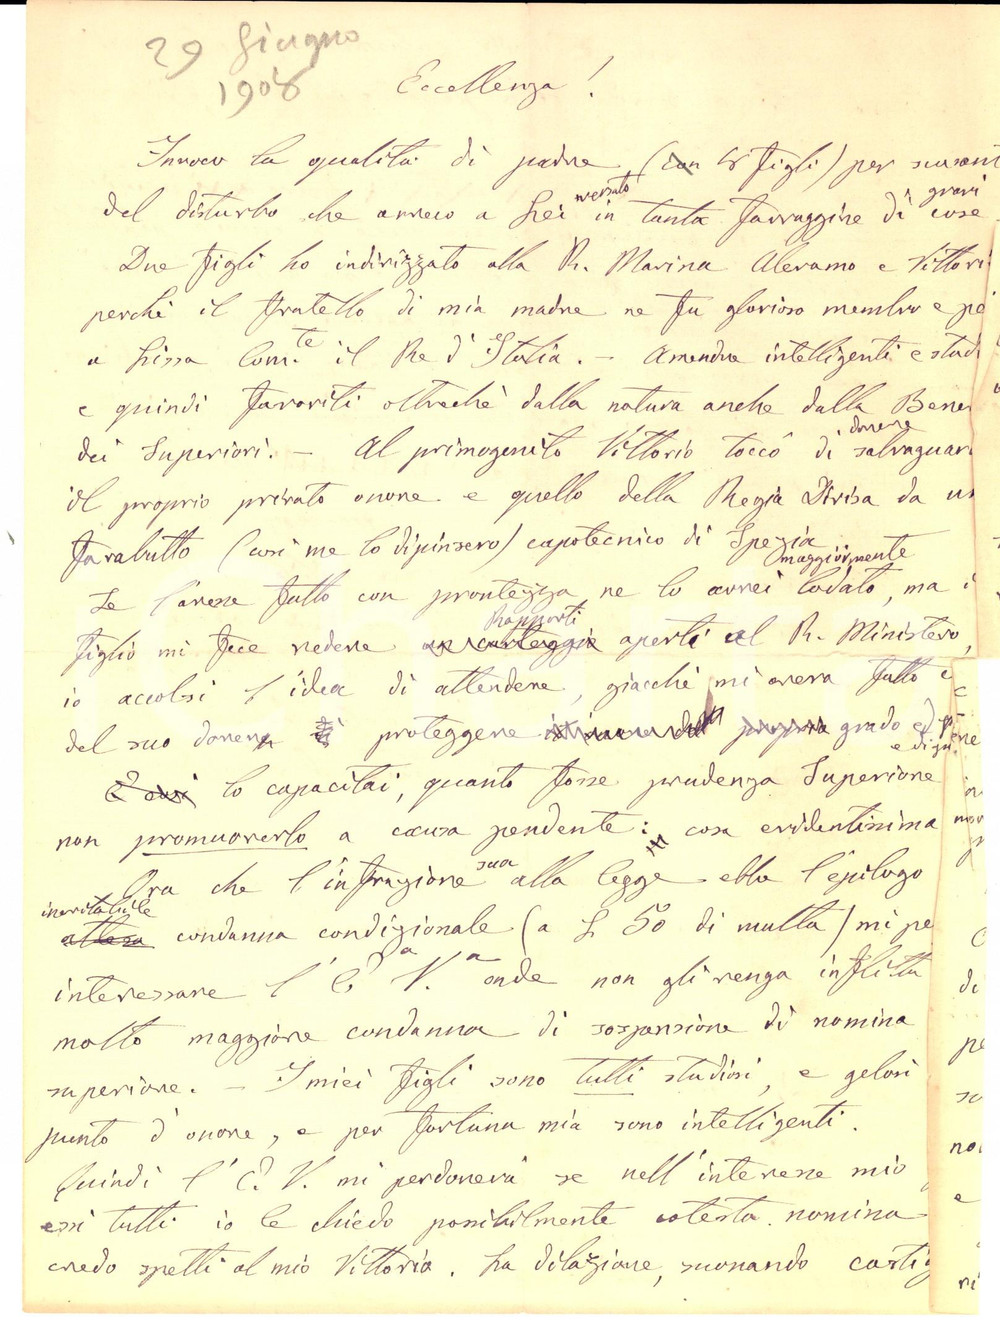 29 Giugno
1908
Eccellenza!
Invoco la qualità di padre (con 5 figli) per
del disturbo che arreco a Lei versato in tanta farraggine di gravi cose
Due figli ho indirizzato alla R. Marina Aleramo e Vittori
perchè il fratello di mia madre ne fu glorioso membro e
a Lissa Com.te il Re d'Italia. - Amendue intelligenti e stud
e quindi favoriti oltrechè dalla natura anche dalla Bene
dei Superiori. - Al primogenito Vittorio toccò di dovere salvaguar
il proprio privato onore e quello della Regia Divisa da un
farabutto (così me lo dipinsero) capotecnico di Spezia
Se l'avesse fatto con prontezza ne lo avrei maggiormente lodato, ma i
figlio mi fece vedere Rapporti aperti al R. Ministero,
io accolsi l'idea di attendere, giacchè mi aveva fatto
del suo dovere proteggere grado e
lo capacitai, quanto fosse prudenza Superiore
non promuoverlo a causa pendente: cosa evidentissima
Ora che l'infrazione sua alla legge ebbe l'epilogo
inevitabile condanna condizionale (a L 50 di multa) mi pe
interessare l'E.a V.a onde non gli venga inflitta
molto maggiore condanna di sospensione di nomina
superiore. - I miei figli sono tutti studiosi, e gelosi
punto d'onore, e per fortuna mia sono intelligenti.
Quindi l'E. V. mi perdonerà se nell'interesse mio
essi tutti io le chiedo possibilmente cotesta nomina
credo spetti al mio Vittorio. La dilazione, suonando castig